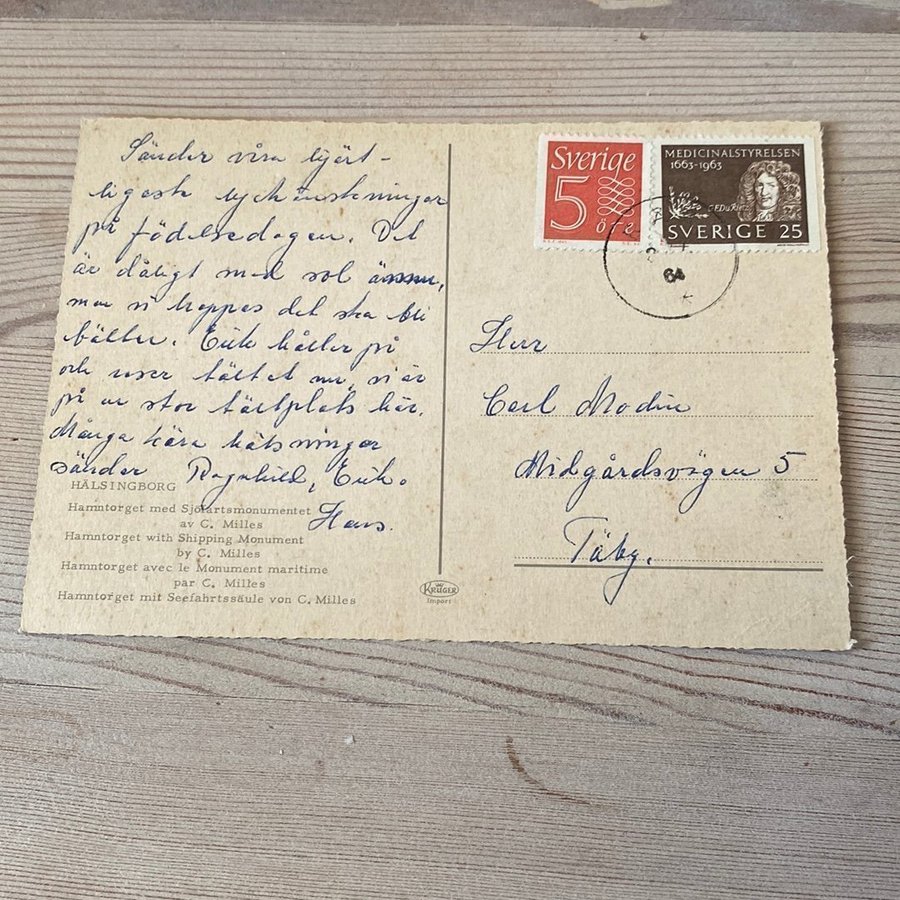 Sänder våra hjärt-
ligaste lyckönskningar
på födelsedagen. Det
är dåligt med sol ännu,
men vi hoppas det ska bli
bättre. Erik håller på
och reser tältet nu, vi är
på en stor tältplats här.
Många kära hälsningar
sänder Ragnhild, Erik.
Hans.
HÄLSINGBORG
Hamntorget med Sjöfartsmonumentet
av C. Milles
Hamntorget with Shipping Monument
by C. Milles
Hamntorget avec le Monument maritime
par C. Milles
Hamntorget mit Seefahrtssäule von C. Milles
KRÜGER
Import
Sverige
5
öre
MEDICINALSTYRELSEN
1663-1963
G.F. Du Rietz
SVERIGE 25
64
Herr
Carl Modin
Midgårdsvägen 5
Täby.